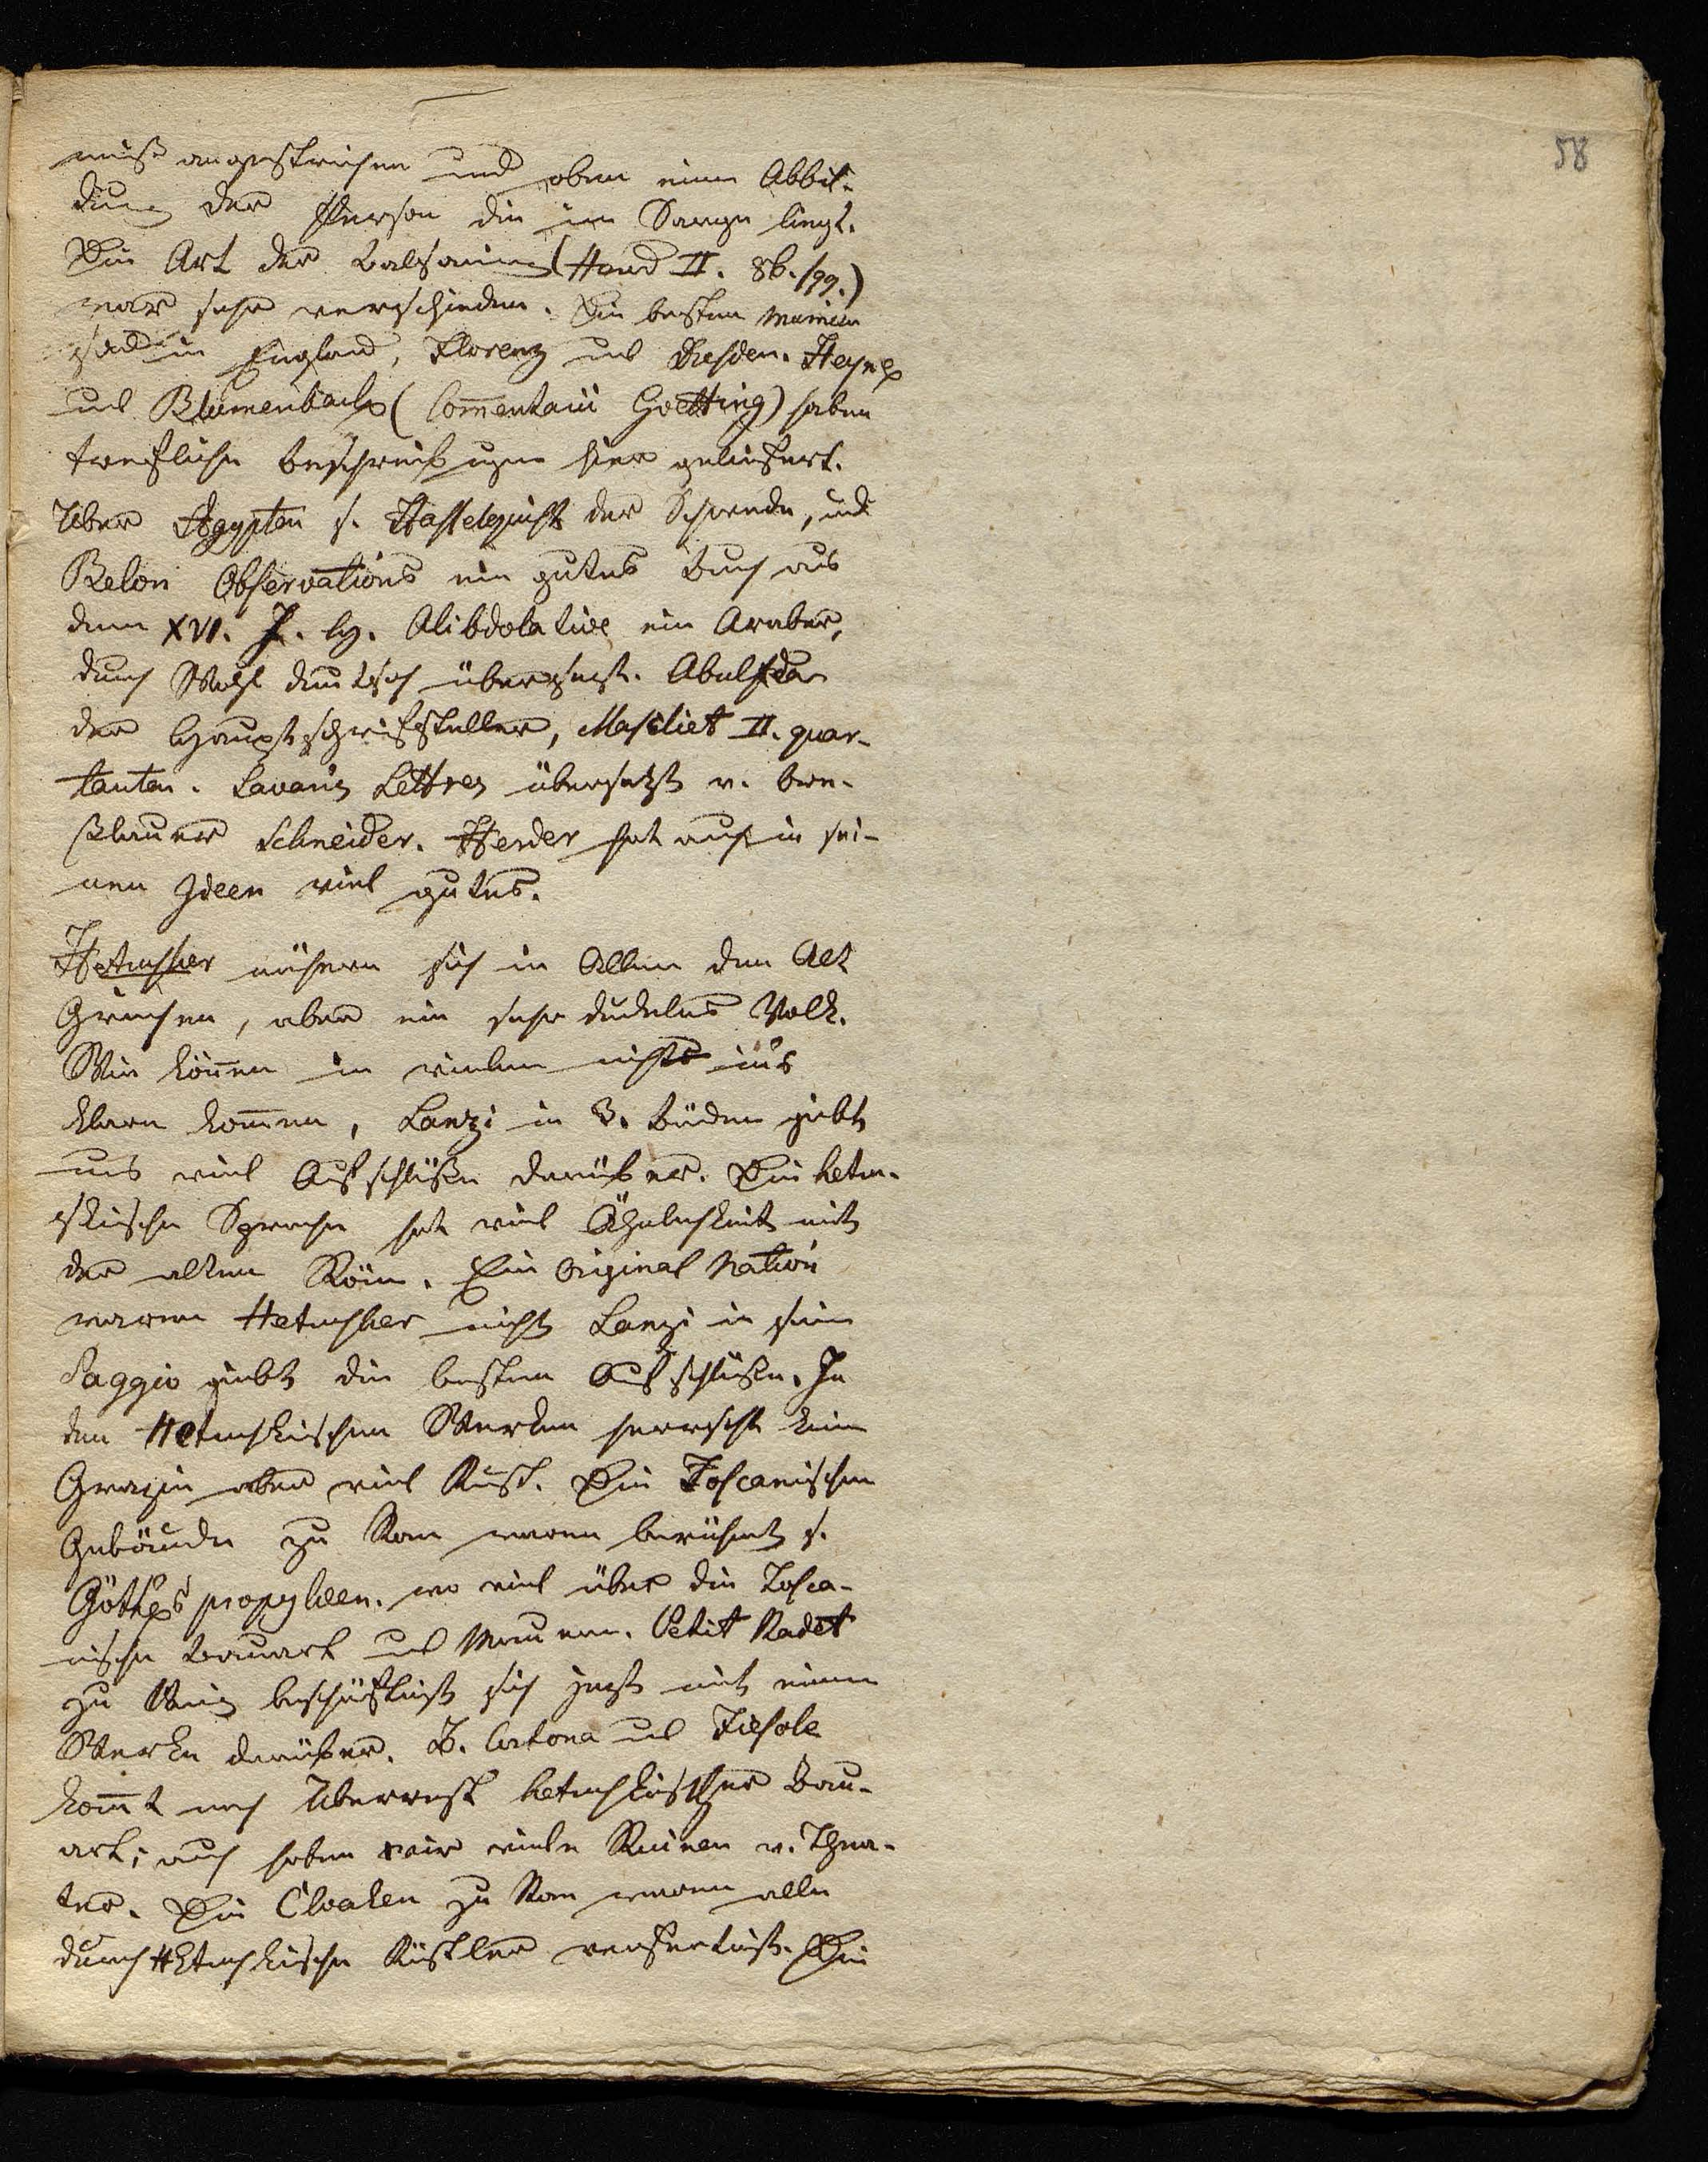 58
weiß angestrichen und oben eine Abbil-
dung der Person die im Sarge liegt.
Die Art der Balsamirung (Herod II. 86. sqq.)
war sehr verschieden. Die besten Mumien
sind in England, Florenz und Dresden. Heyne
und Blumenbach (Com̄entarii Goetting) haben
trefliche Beschreibungen hier geliefert.
Über Ägypten s. Hasselquist der Schwede, und
Belon Observations ein gutes Buch aus
dem XVI. J. h. Abdolative ein Araber,
durch Wahl deutsch übersezt. Abulfeda
der Hauptschriftsteller, Mascliet II. quar-
tanten. Savary's Lettres übersetzt v. Bre-
slauer Schneider. Herder hat auch in sei-
nen Ideen viel gutes.
Hetrusker nähern sich in Allem den Alt
Griechen, aber ein sehr dunkles Volk.
Wir kön̄en in vielem nicht ins
klare kom̄en, Lanzi in 3. Bänden giebt
uns viel Aufschlüße darüber. Die hetru-
skische Sprache hat viel Ähnlichkeit mit
der alten Röm. Ein Original Nation
waren Hetrusker nicht Lanzi in sein
Saggio giebt die besten Aufschlüße. In
den Hetruskischen Werken herrscht keine
Grazie aber viel Kunst. Die Toscanischen
Gebäude zu Rom waren berühmt s.
Göthes propyleen. wo viel über die Tosca-
nische Bauart und Mauern. Petit Radet
zu beschäftigt sich jezt mit einem
Werke darüber. Z. Cortona und Fiesole
kom̄t noch Überrest hetruskischer Bau-
art; auch haben wir viele Ruinen v. Thea-
ter. Die Cloaken zu Rom waren alle
durch Hetruskische Künstler verfertigt. Die